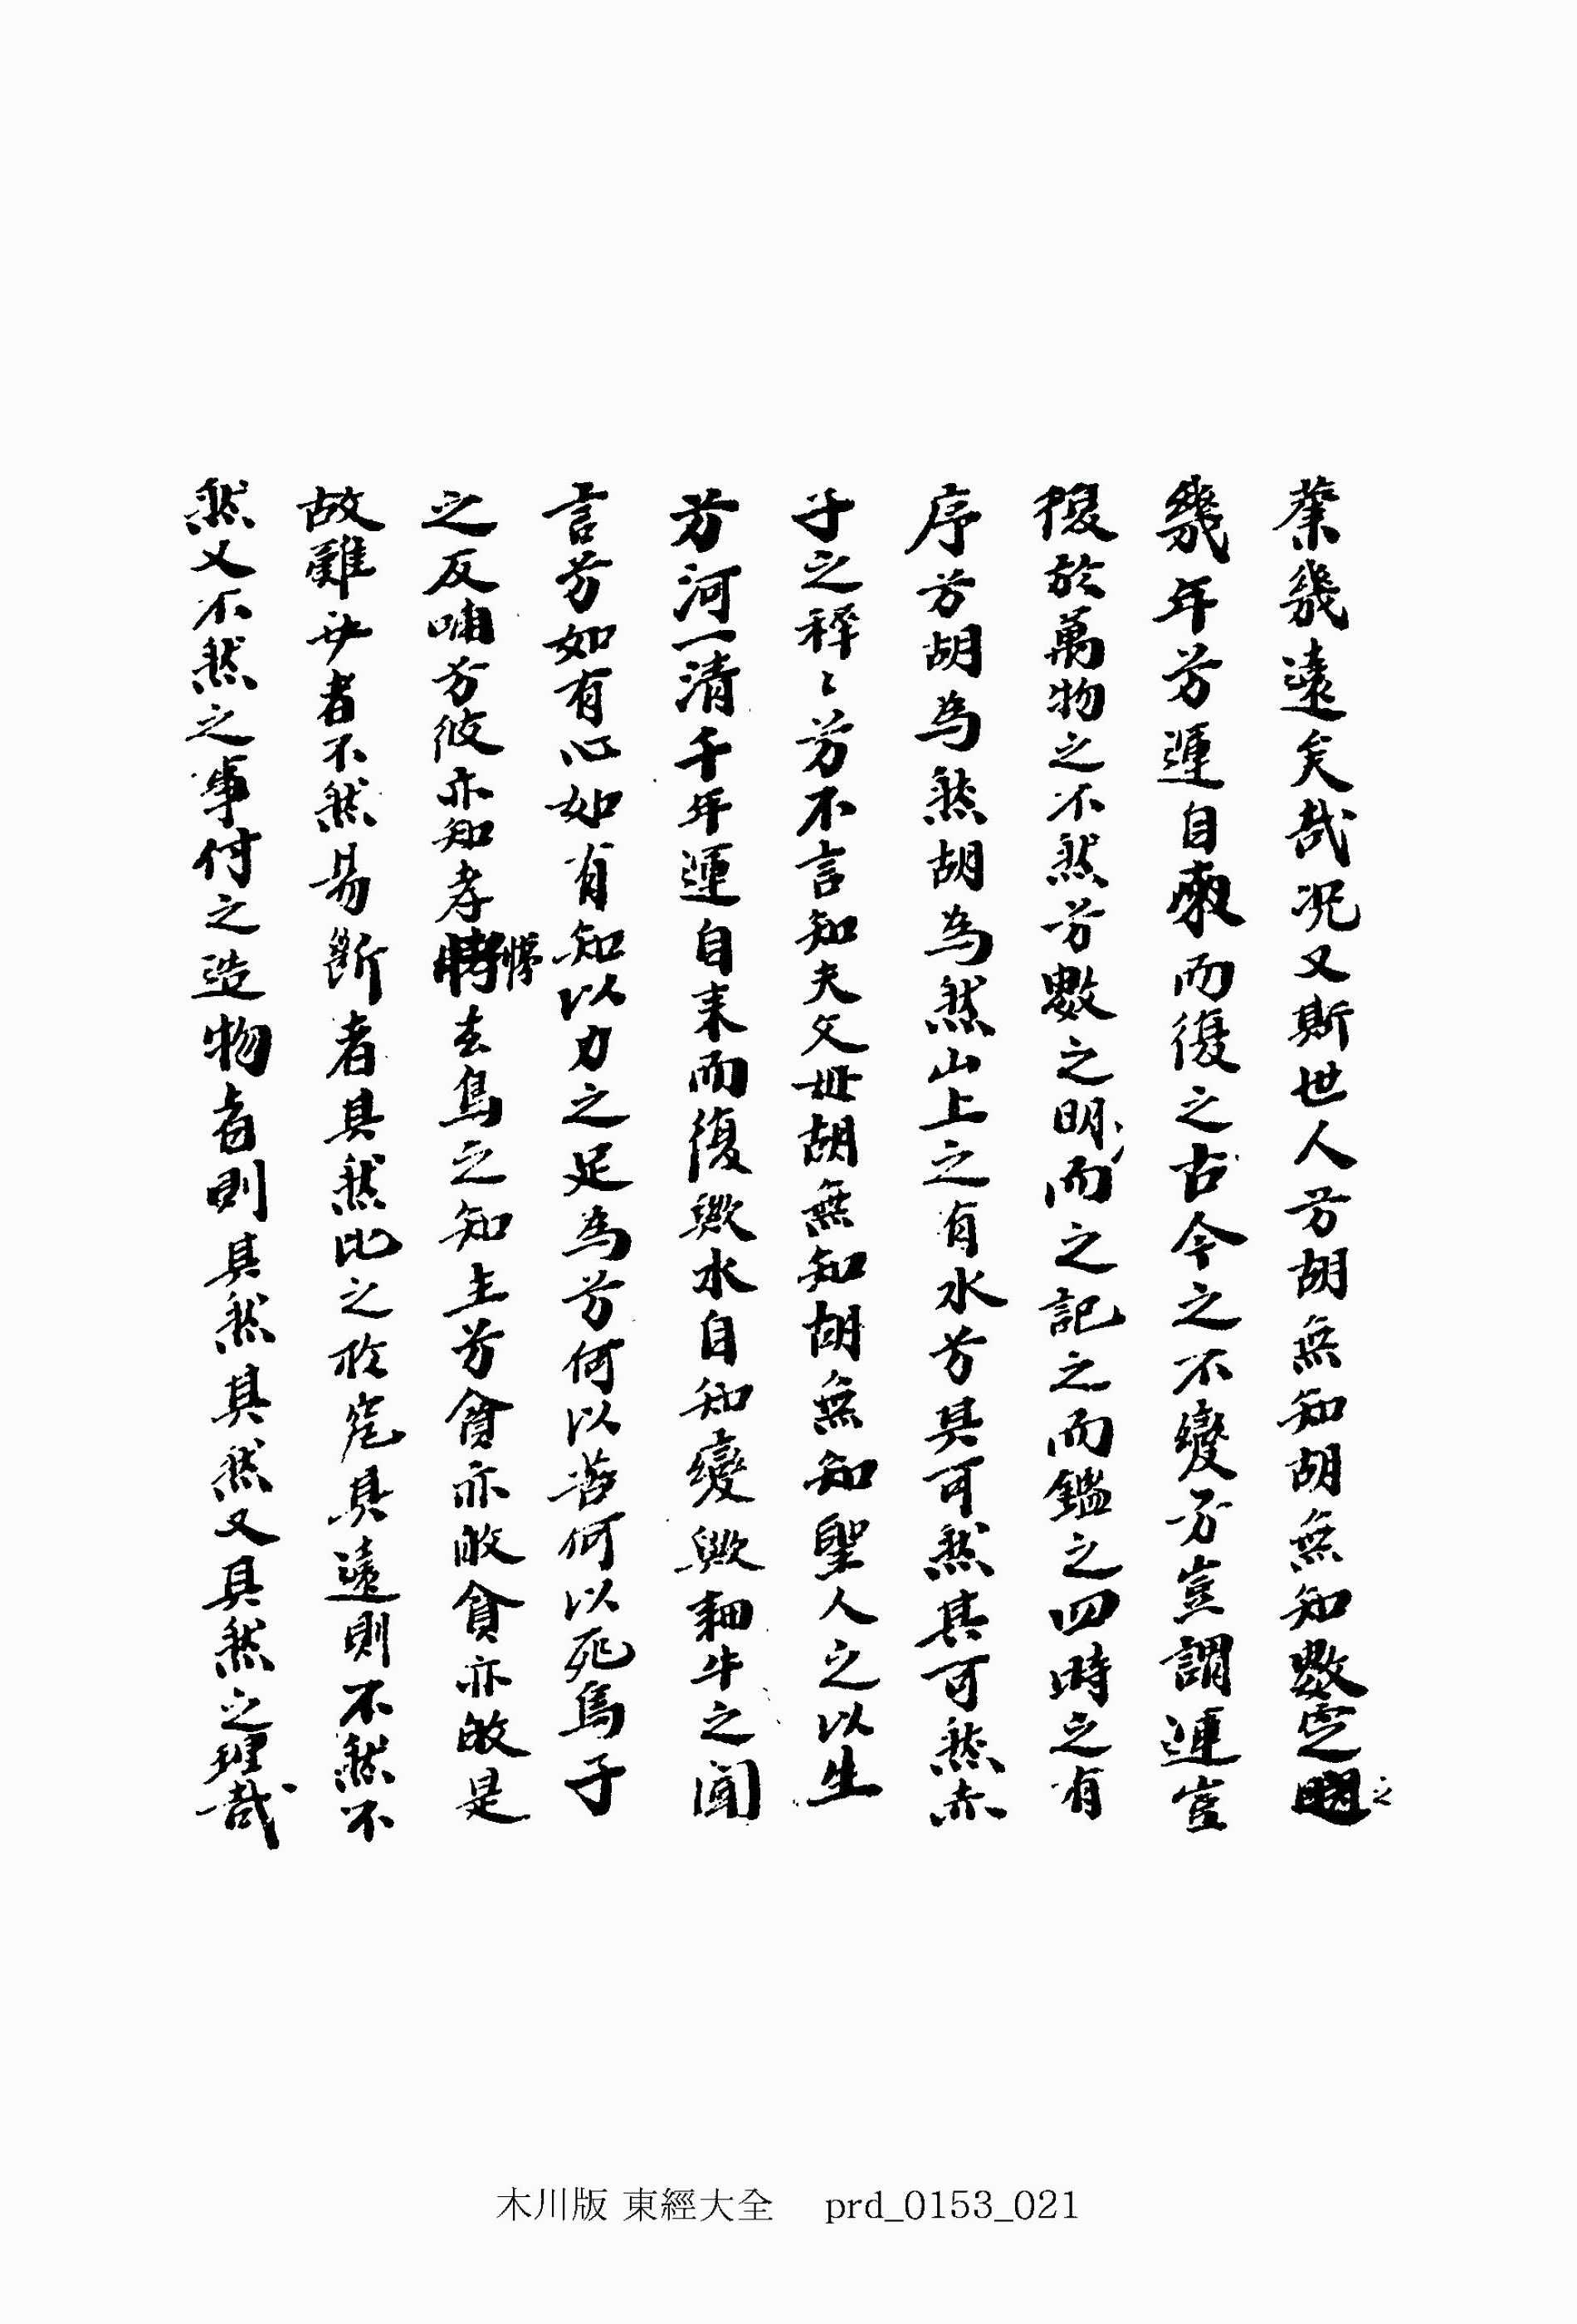 業幾遠矣哉况又斯世人兮胡無知胡無知數定之
幾年兮運自來而復之古今之不變兮豈謂運豈
復於萬物之不然兮數之明而之記之而鑑之四時之有
序兮胡為然胡為然山上之有水兮其可然其可然赤
子之稺〻兮不言知夫父母胡無知胡無知聖人之以生
兮河一清千年運自来而復歟水自知變歟畊牛之聞
言兮如有心如有知以力之足為兮何以苦何以死烏子
之反哺兮彼亦知孝悌玄鳥之知主兮貧亦皈貧亦皈是
故難必者不然易斷者其然比之於究其遠則不然不
然又不然之事付之造物者則其然其然又其然之理哉
木川版 東經大全 prd_0153_021